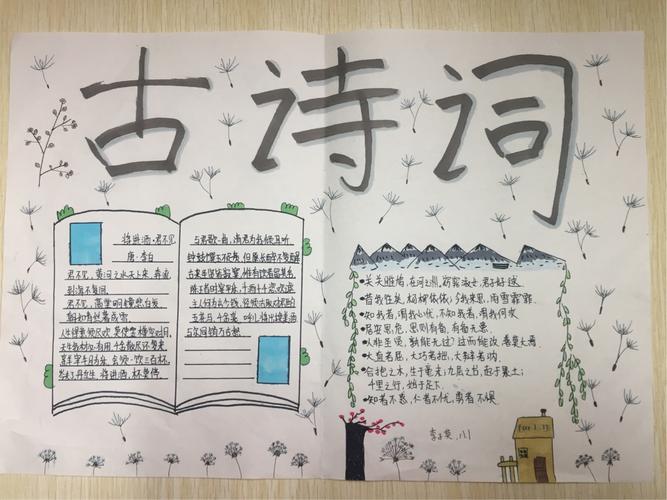 古诗词
将进酒·君不见
唐·李白
君不见，黄河之水天上来，奔流
到海不复回
君不见，高堂明镜悲白发
朝如青丝暮成雪
人生得意须尽欢，莫使金樽空对月，
天生我材必有用，千金散尽还复来
烹羊宰牛且为乐，会须一饮三百杯，
岑夫子，丹丘生，将进酒，杯莫停，
与君歌一曲，请君为我倾耳听
钟鼓馔玉不足贵，但愿长醉不愿醒
古来圣贤皆寂寞，惟有饮者留其名
陈王昔时宴平乐，斗酒十千恣欢谑
主人何为言少钱，径须沽取对君酌
五花马，千金裘，呼儿将出换美酒
与尔同销万古愁
关关雎鸠，在河之洲，窈窕淑女，君子好逑
昔我往矣，杨柳依依，今我来思，雨雪霏霏
知我者，谓我心忧，不知我者，谓我何求
居安思危，思则有备，有备无患
人非圣贤，孰能无过，过而能改，善莫大焉
大直若屈，大巧若拙，大辩若讷
合抱之木，生于毫末，九层之台，起于累土；
千里之行，始于足下
知者不惑，仁者不忧，勇者不惧